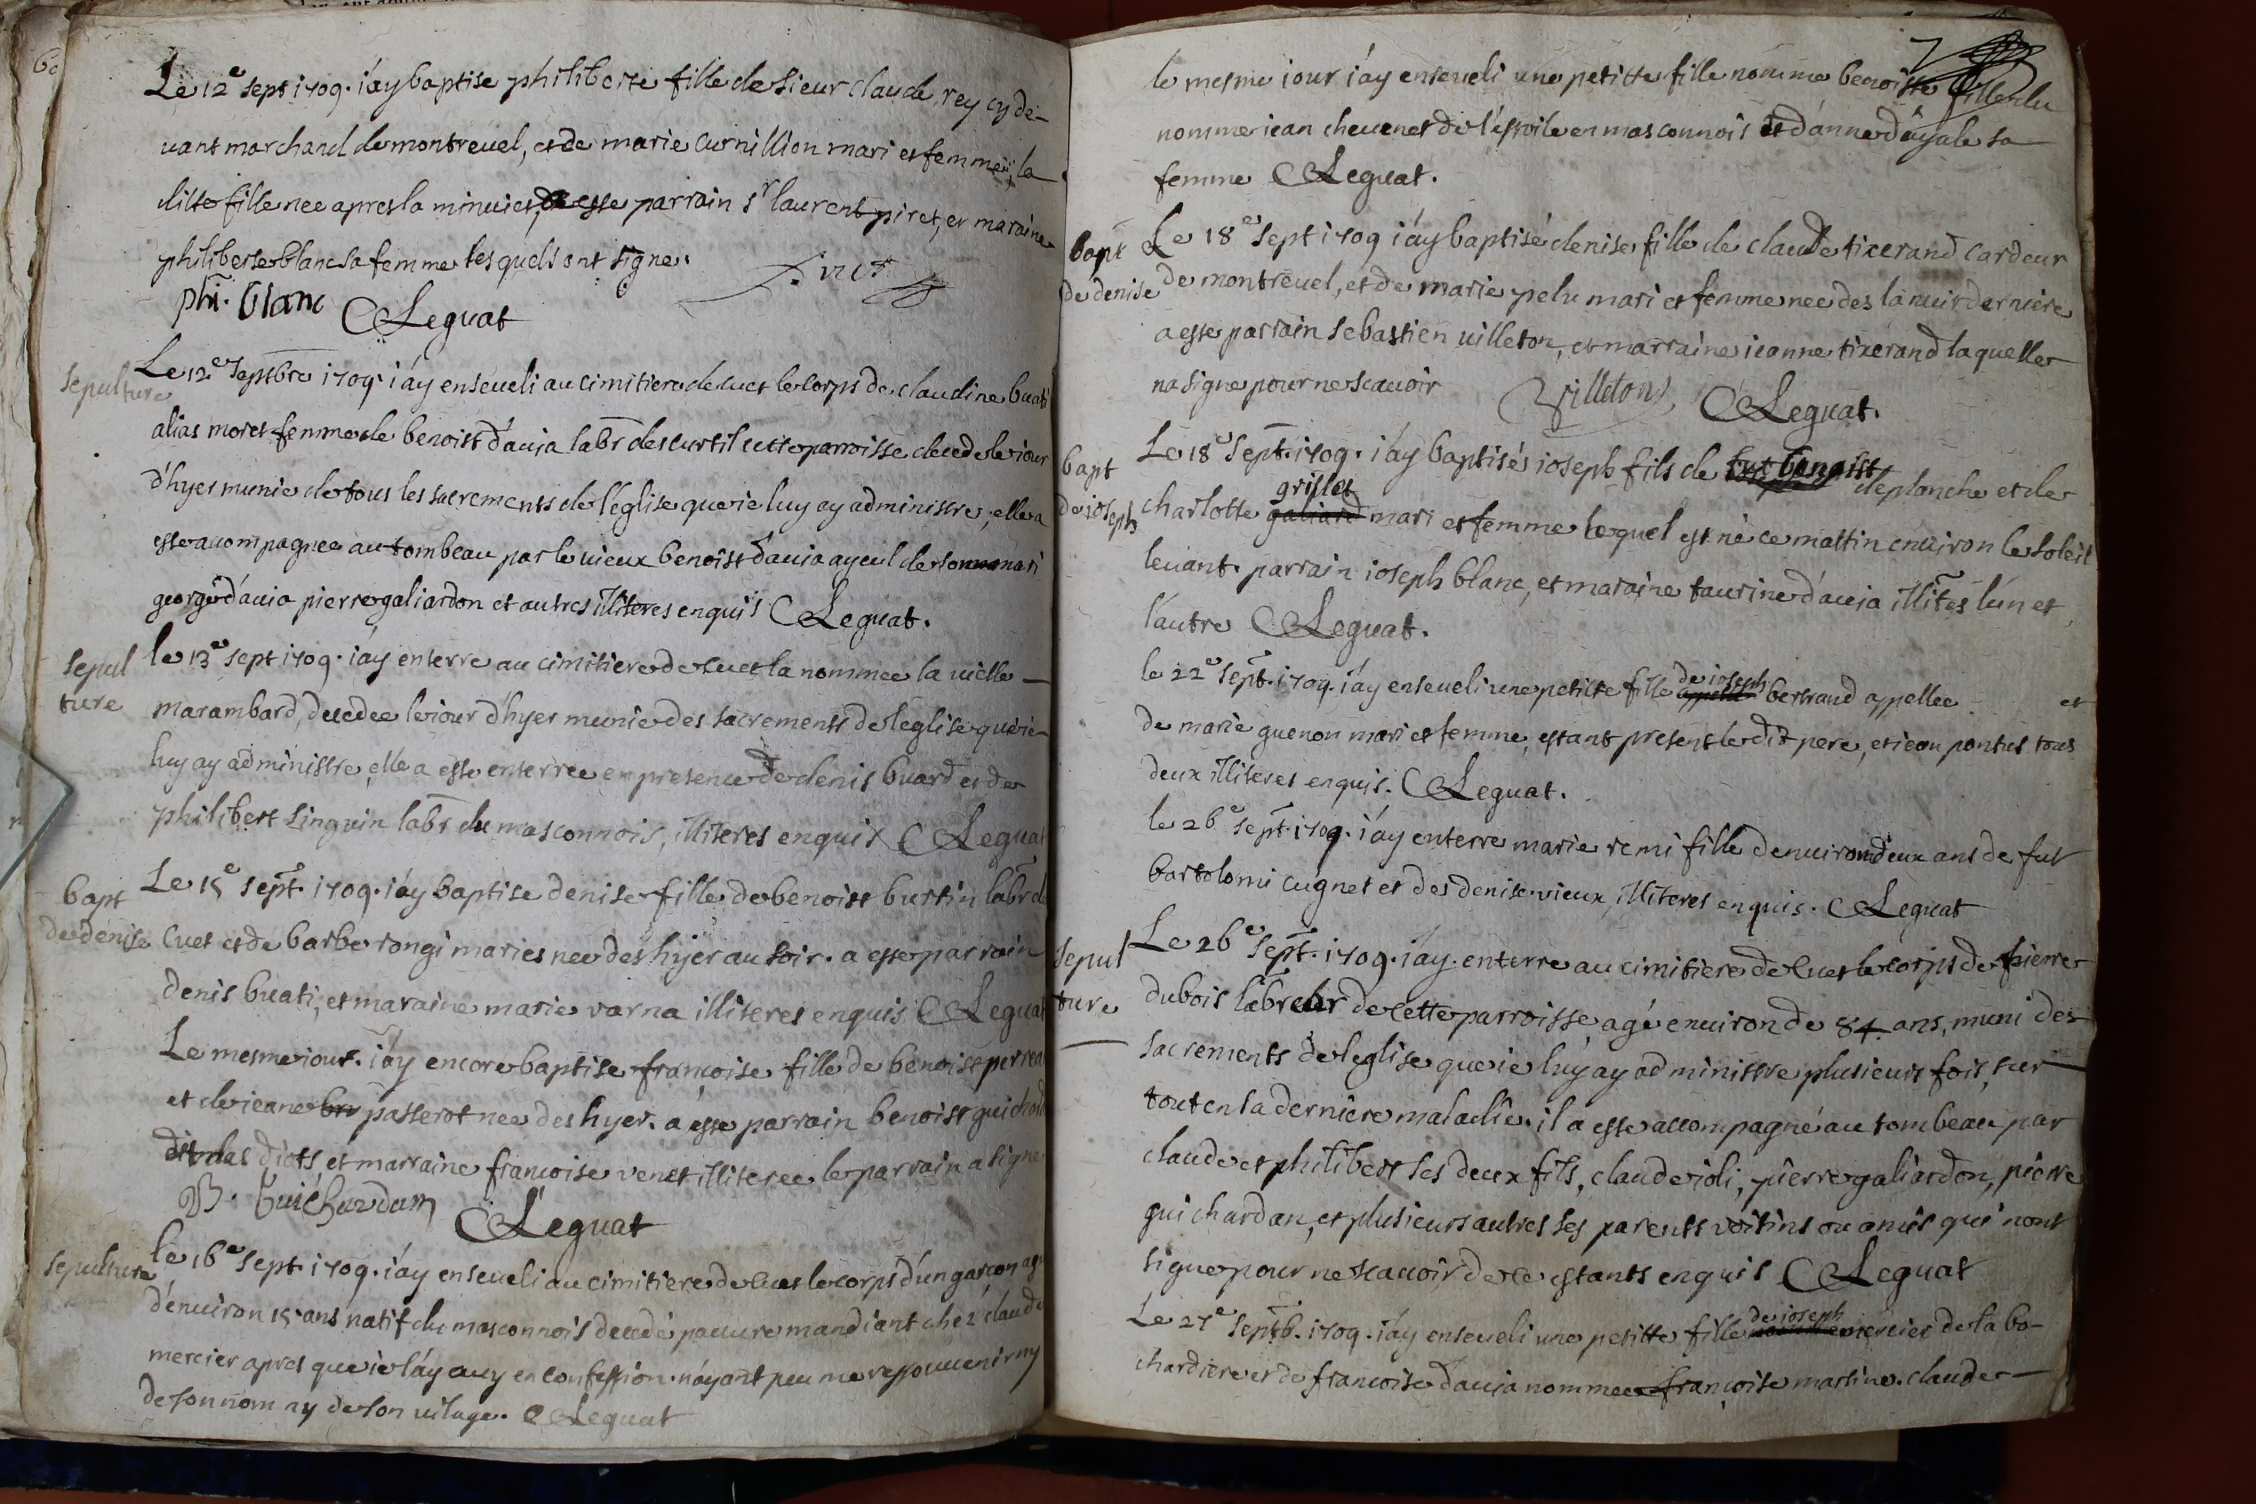 Le 12e sept 1709. i'ay baptise philiberte fille de sieur claude rey cy de-
uant marchand de montreuel, et de marie curnillion mari et femme, la
ditte fille nee apres la minuict, a esse parrain sr laurent piret, et maraine
philiberte blanc sa femme lesquels ont signe.
phi. blanc Leguat
sepulture
Le 12e septbre 1709. i'ay enseueli au cimitiere de cuet le corps de claudine buati
alias moret femme de benoist d'auia labr des curtil cette parroisse decede le iour
d'hyer munie de tous les sacrements de l'eglise que ie luy ay administre, elle a
esse acompagnee au tombeau par le vieux benoist d'auia ayeul de son mari
george d'auia pierre galiardon et autres illiteres enquis Leguat.
sepul
ture
le 13e sept 1709. i'ay enterre au cimitiere de cuet la nommee la vielle
marambard, decedee le iour d'hyer munie des sacrements de leglise que ie
luy ay administre, elle a esse enterree en presence de denis buard et de
philibert Linguin labr du masconnois, illiteres enquis Leguat
bapt
de denise
Le 15e sept. 1709. i'ay baptise denise fille de benoist burtin labr de
Cuet et de barbe rongi maries nee des hyer au soir. a esse parrain
denis buati, et maraine marie varna illiteres enquis Leguat
Le mesme iour. i'ay encore baptise francoise fille de benoist perrea
et de ieane passerot nee des hyer. a esse parrain benoist guichard
dit las diots et marraine francoise venet illiteree le parrain a signe
B. Guichardan Leguat
sepulture
le 16e sept. 1709. i'ay enseueli au cimitiere de cuet le corps d'un garcon age
d'enuiron 15 ans natif du masconnois decede pauure mandiant chez claude
mercier apres que ie l'ay ouy en confession. n'ayant peu me ressouuenir ny
de son nom ny de son vilage. Leguat
7
le mesme iour i'ay enseueli une petitte fille nomme benoiste fille du
nomme iean cheuenet de l'estoile en masconnois et d'anne d'ayale sa
femme Leguat.
bapt
de denise
Le 18e sept 1709 i'ay baptisé denise fille de claude tixerand cardeur
de montreuel, et de marie pelu mari et femme nee des la nuit derniere
a esse parrain sebastien villeton, et marraine ieanne tixerand laquelle
na signe pour ne scauoir Villeton Leguat.
bapt
de ioseph
Le 18e sept. 1709. i'ay baptisés ioseph fils de deplanche et de
grillet
charlotte galiard mari et femme lequel est né ce mattin enuiron le soleil
leuant. parrain ioseph blanc, et maraine taurine d'auia illites l'un et
l'autre Leguat.
le 22e sept. 1709. i'ay enseueli une petitte fille de ioseph bertrand appellee et
de marie guenon mari et femme, estant present le dit pere, et iean pontus tous
deux illiteres enquis. Leguat.
le 26e sept. 1709. i'ay enterre marie remi fille d'enuiron deux ans de fut
bartolomi cugnet et des denise vieux, illiteres enquis. Leguat
sepul
ture
Le 26e sept. 1709. i'ay enterre au cimitiere de cuet le corps de pierre
dubois labreur de cette parroisse agé enuiron de 84 ans, muni des
sacrements de leglise que ie luy ay administre plusieurs fois, sur
tout en sa derniere maladie. il a esse accompagné au tombeau par
claude et philibert ses deux fils, claude ioli, pierre galiardon, pierre
guichardan, et plusieurs autres ses parents voisins ou amis qui n'ont
signe pour ne scauoir de ce estants enquis Leguat
Le 27e septb. 1709. i'ay enseueli une petitte fille de ioseph mercier de la bo-
chardiere et de francoise dauia nommee francoise martine. claude